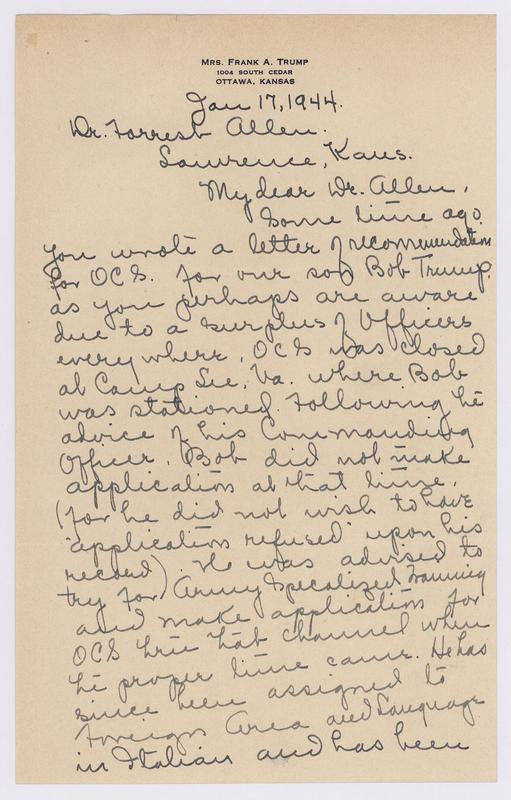 MRS. FRANK A. TRUMP
1004 SOUTH CEDAR
OTTAWA, KANSAS
Jan 17, 1944.
Dr. Forrest Allen.
Lawrence, Kans.
My dear Dr. Allen,
Some time ago
you wrote a letter of recommendation
for OCS. for our son Bob Trump.
as you perhaps are aware
due to a surplus of Officers
everywhere, OCS was closed
at Camp Lee, Va. where Bob
was stationed. Following the
advice of his Commanding
Officer, Bob did not make
application at that time.
(for he did not wish to have
"application refused" upon his
record). He was advised to
try for Army Specialized Training
and make application for
OCS thru that channel when
the proper time came. He has
since been assigned to
Foreign Area and Language
in Italian and has been